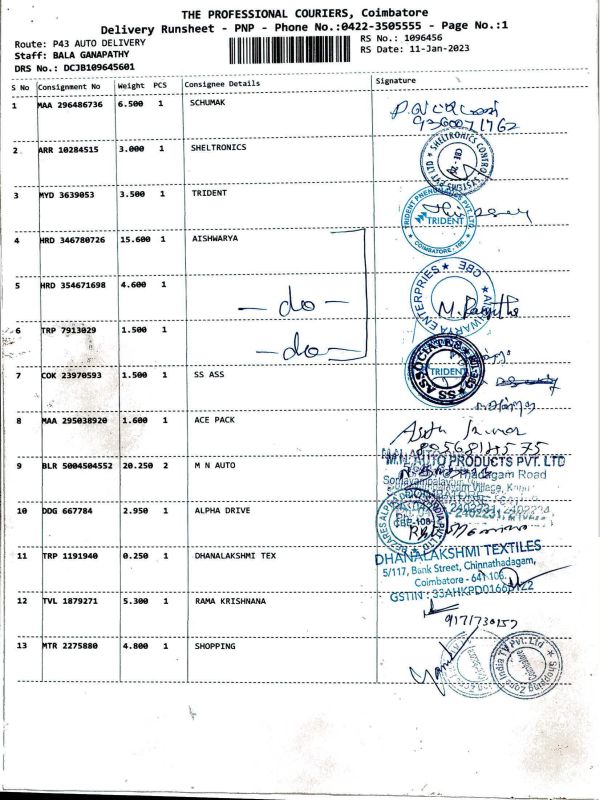 THE PROFESSIONAL COURIERS, Coimbatore
Delivery Runsheet - PNP - Phone No.:0422-3505555 - Page No.:1
Route: P43 AUTO DELIVERY
RS No.: 1096456
Staff: BALA GANAPATHY
RS Date: 11-Jan-2023
DRS No.: DCJB109645601
S No Consignment No Weight PCS Consignee Details Signature
1 MAA 296486736 6.500 1 SCHUMAK
9360071762
2 ARR 10284515 3.000 1 SHELTRONICS
SHELTRONICS CONTROL SYSTEMS PVT LTD
CBE
3 MYD 3639053 3.500 1 TRIDENT
TRIDENT PVT. LTD
TRIDENT
COIMBATORE
4 HRD 346780726 15.600 1 AISHWARYA
5 HRD 354671698 4.600 1
- do -
AISHWARYA ENTERPRIES CBE
6 TRP 7913029 1.500 1
- do -
7 COK 23970593 1.500 1 SS ASS
SS ASSOCIATES
TRIDENT
8 MAA 295038920 1.600 1 ACE PACK
9 BLR 5004504552 20.250 2 M N AUTO
M.N. AUTO PRODUCTS PVT. LTD
Thadagam Road
10 DDG 667784 2.950 1 ALPHA DRIVE
11 TRP 1191940 0.250 1 DHANALAKSHMI TEX
DHANALAKSHMI TEXTILES
5/117, Bank Street, Chinnathadagam,
Coimbatore - 641 108.
12 TVL 1879271 5.300 1 RAMA KRISHNANA
9171730157
13 MTR 2275880 4.800 1 SHOPPING
Shopping Zone India TV Pvt. Ltd
Coimbatore